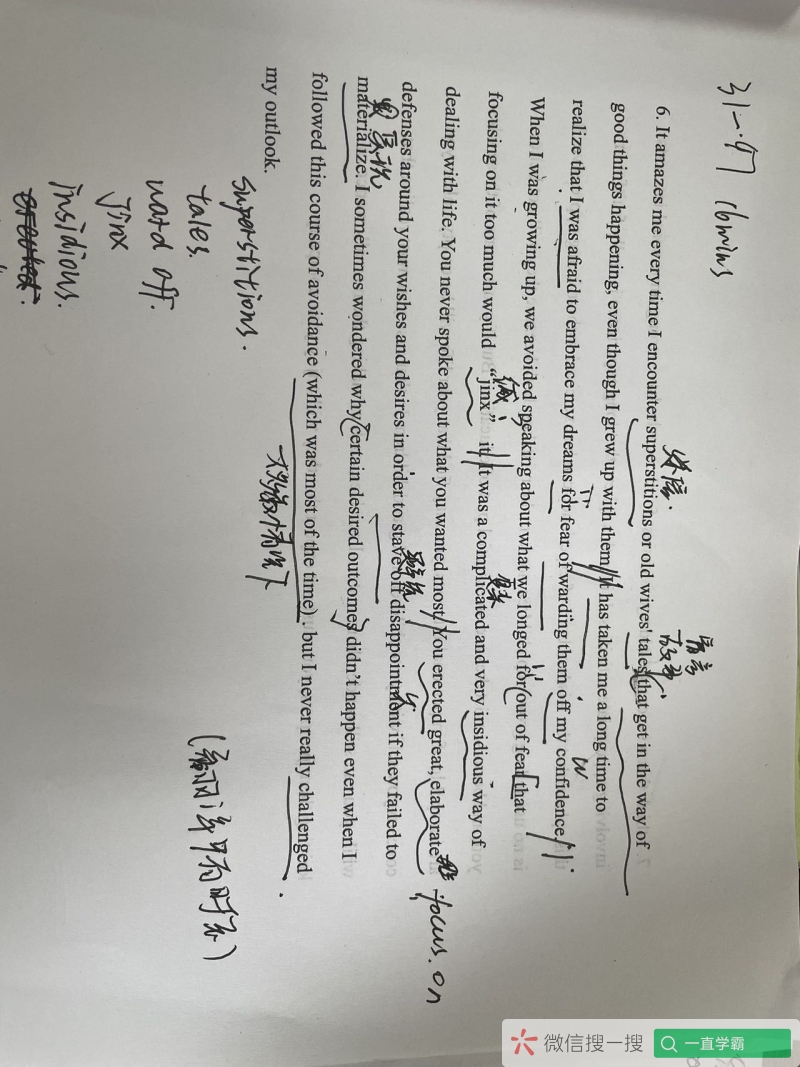 31-.97 16mins
6. It amazes me every time I encounter superstitions or old wives' tales that get in the way of
good things happening, even though I grew up with them. It has taken me a long time to
realize that I was afraid to embrace my dreams for fear of warding them off my confidence.
When I was growing up, we avoided speaking about what we longed for out of fear that
focusing on it too much would “jinx” it. It was a complicated and very insidious way of
dealing with life. You never spoke about what you wanted most. You erected great, elaborate
defenses around your wishes and desires in order to stave off disappointment if they failed to
materialize. I sometimes wondered why certain desired outcomes didn't happen even when I
followed this course of avoidance (which was most of the time), but I never really challenged
my outlook.
迷信.
故事
focus. on
superstitions.
tales.
ward off.
Jinx
insidious.
微信搜一搜
一直学霸